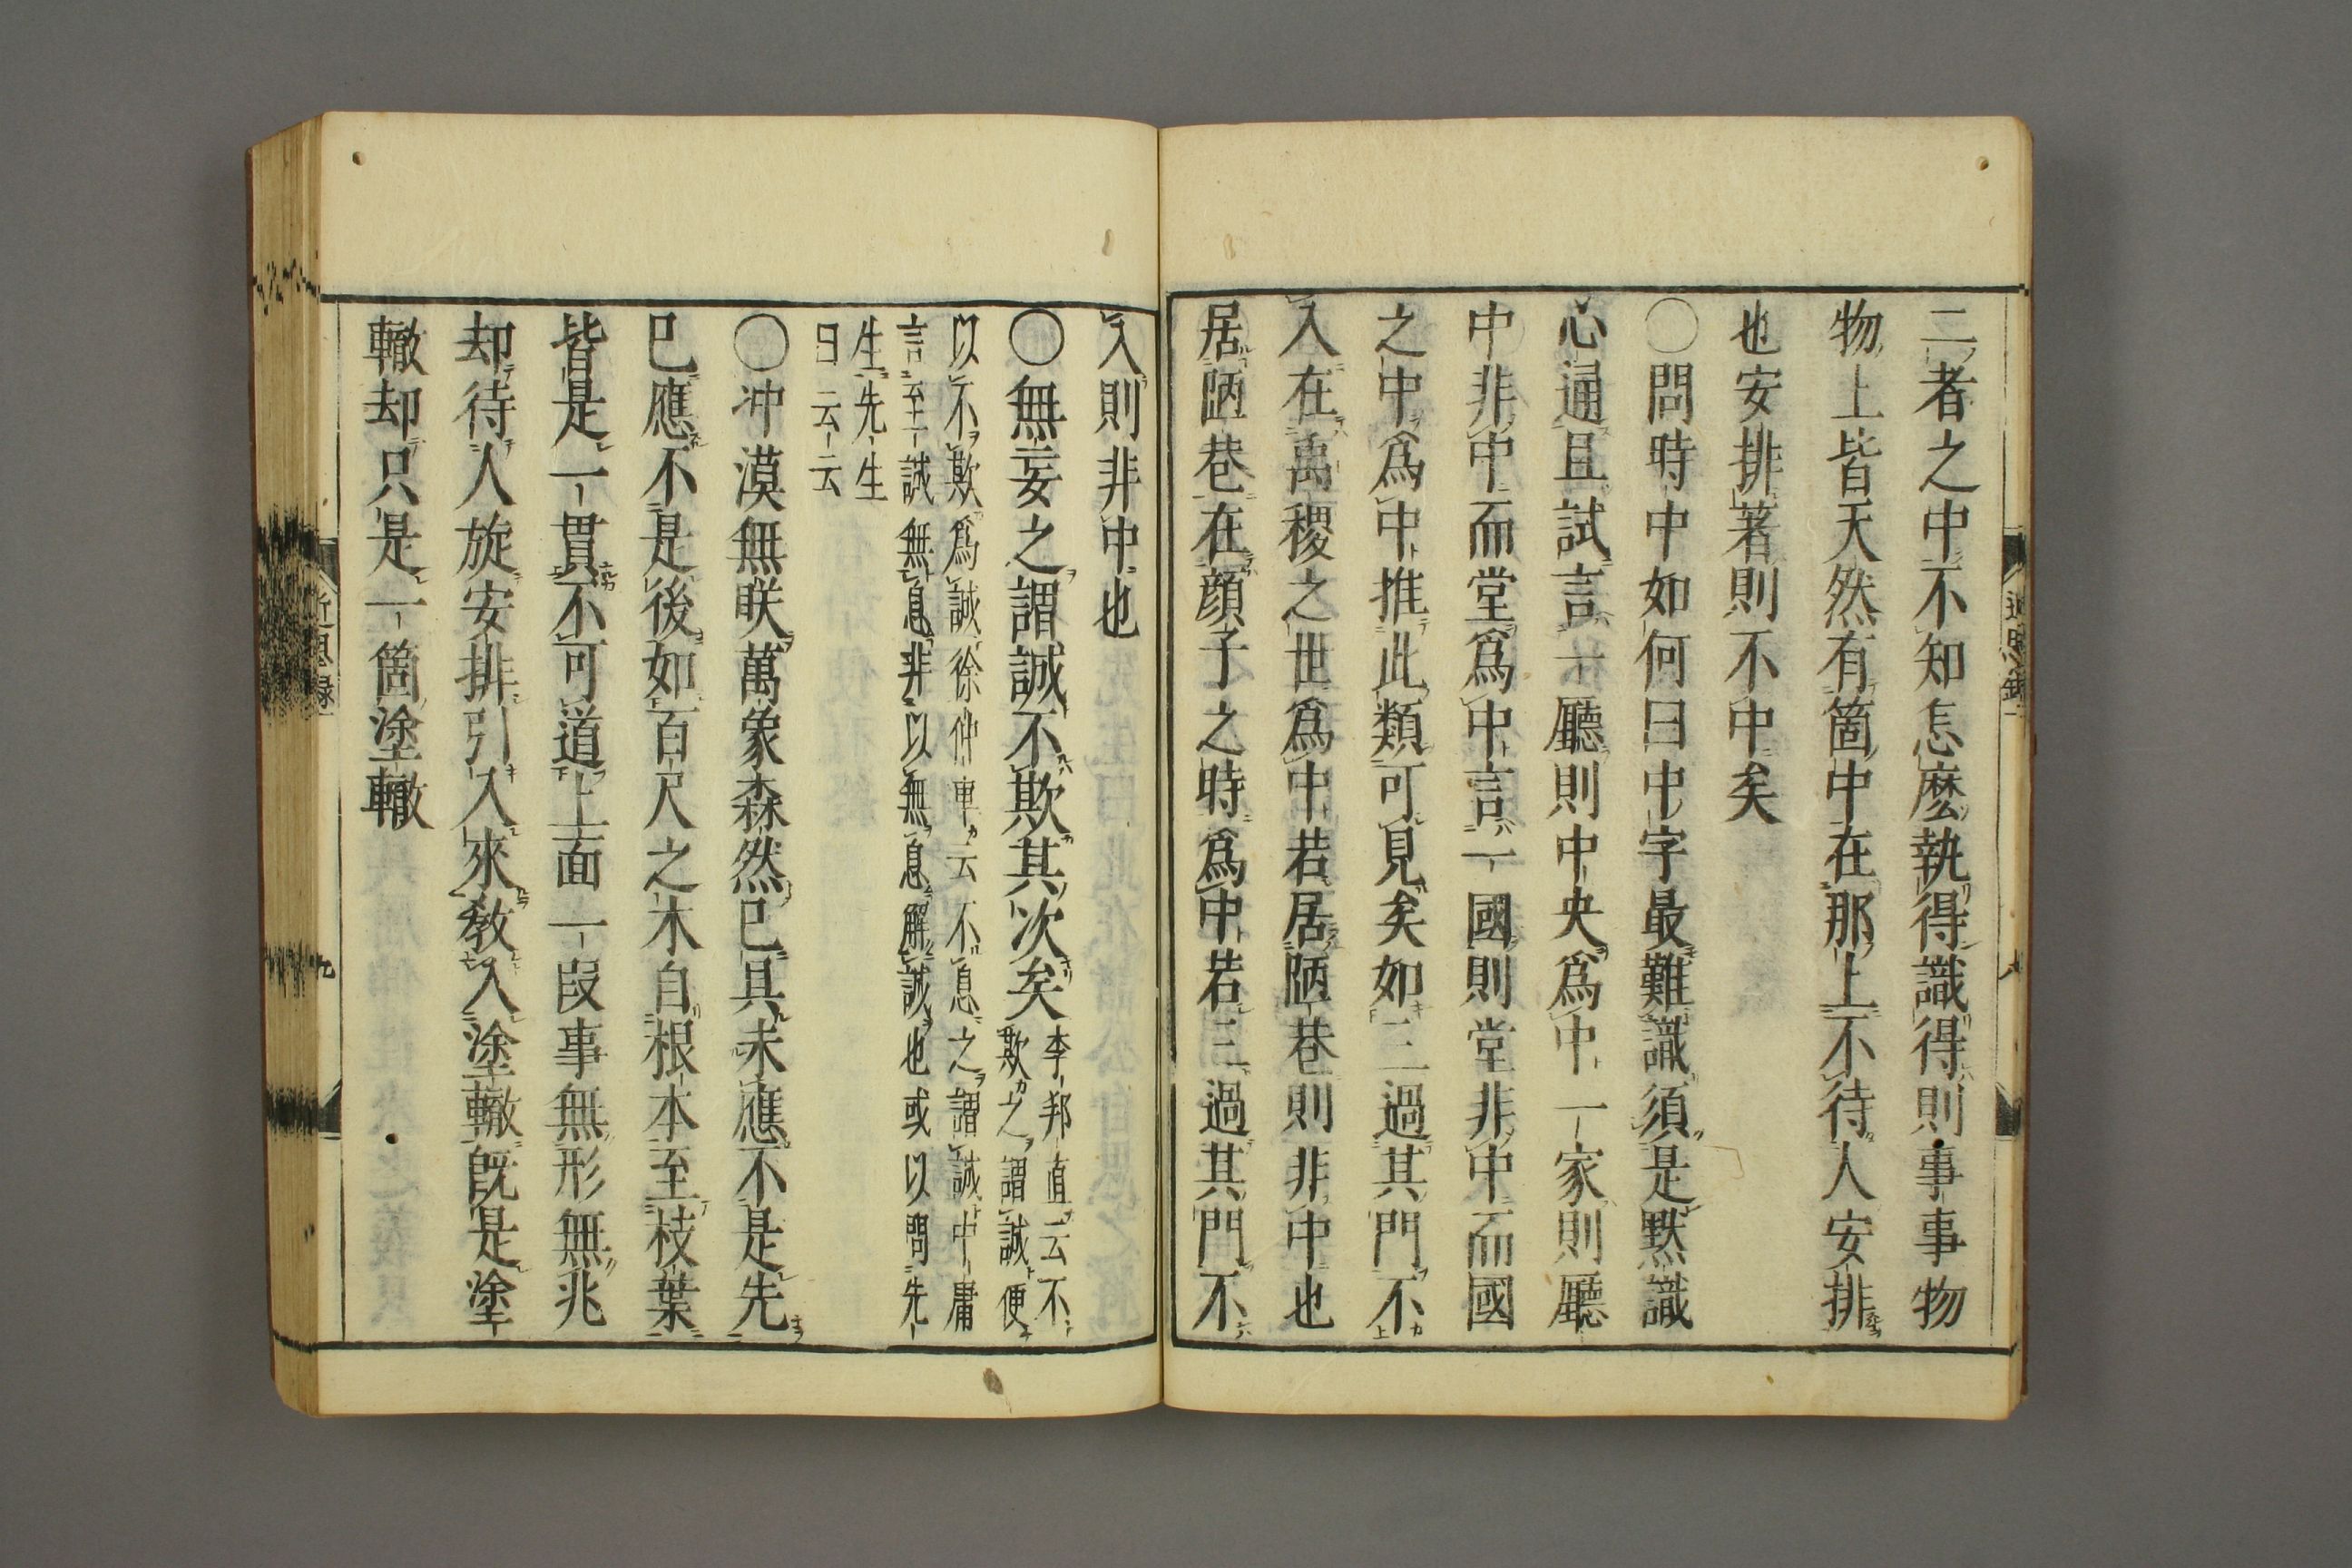 二者之中不知怎麼執得識得則事事物
物上皆天然有箇中在那上不待人安排
也安排著則不中矣
○問時中如何曰中字最難識須是默識
心通且試言一廳則中央爲中一家則廳
中非中而堂爲中言一國則堂非中而國
之中爲中推此類可見矣如三過其門不
入在禹稷之世爲中若居陋巷則非中也
居陋巷在顔子之時爲中若三過其門不
入則非中也
○無妄之謂誠不欺其次矣李邦直云不
欺之謂誠便
以不欺爲誠徐仲車云不息之謂誠中庸
言至誠無息非以無息解誠也或以問先
生先生
曰云云
○冲漠無眹萬象森然已具未應不是先
已應不是後如百尺之木自根本至枝葉
皆是一貫不可道上面一段事無形無兆
却待人旋安排引入來敎入塗轍旣是塗
轍却只是一箇塗轍
近思録
九